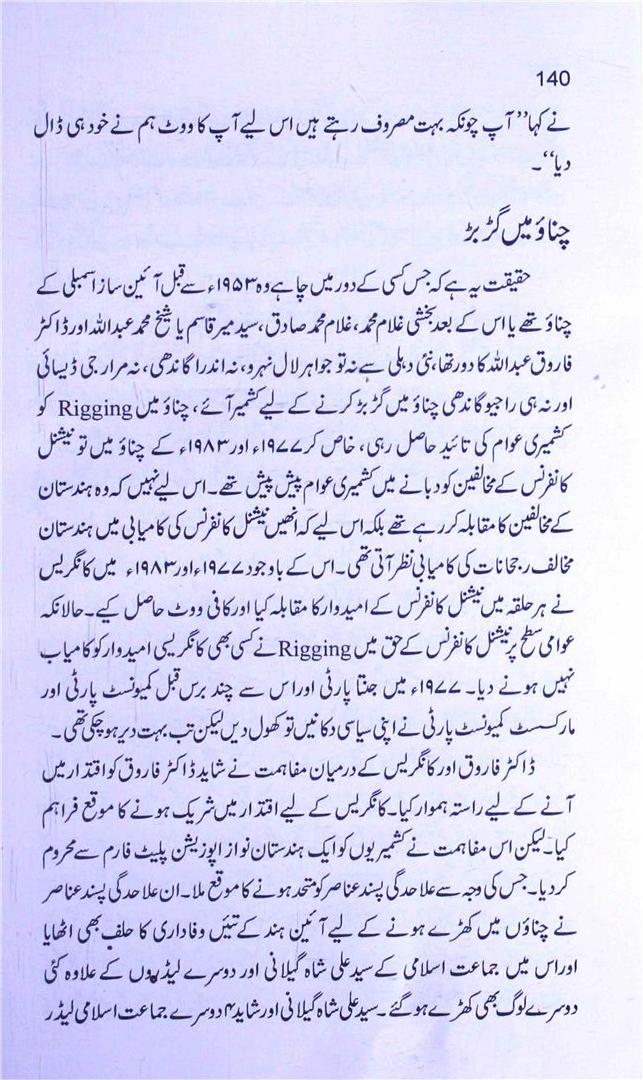 140
نے کہا’’ آپ چونکہ بہت مصروف رہتے ہیں اس لیے آپ کا ووٹ ہم نے خود ہی ڈال
دیا‘‘۔
چناؤ میں گڑبڑ
حقیقت یہ ہے کہ جس کسی کے دور میں چاہے وہ ۱۹۵۳ء سے قبل آئین ساز اسمبلی کے
چناؤ تھے یا اس کے بعد بخشی غلام محمد، غلام محمد صادق، سید میر قاسم یا شیخ محمد عبداللہ اور ڈاکٹر
فاروق عبداللہ کا دور تھا، نئی دہلی سے نہ تو جواہر لال نہرو، نہ اندرا گاندھی، نہ مرارجی ڈیسائی
اور نہ ہی راجیو گاندھی چناؤ میں گڑبڑ کرنے کے لیے کشمیر آئے، چناؤ میں Rigging کو
کشمیری عوام کی تائید حاصل رہی، خاص کر ۱۹۷۷ء اور ۱۹۸۳ء کے چناؤ میں تو نیشنل
کانفرنس کے مخالفین کو دبانے میں کشمیری عوام پیش پیش تھے۔ اس لیے نہیں کہ وہ ہندستان
کے مخالفین کا مقابلہ کر رہے تھے بلکہ اس لیے کہ انھیں نیشنل کانفرنس کی کامیابی میں ہندستان
مخالف رجحانات کی کامیابی نظر آتی تھی۔ اس کے باوجود ۱۹۷۷ء اور ۱۹۸۳ء میں کانگریس
نے ہر حلقہ میں نیشنل کانفرنس کے امیدوار کا مقابلہ کیا اور کافی ووٹ حاصل کیے۔ حالانکہ
عوامی سطح پر نیشنل کانفرنس کے حق میں Rigging نے کسی بھی کانگریسی امیدوار کو کامیاب
نہیں ہونے دیا۔ ۱۹۷۷ء میں جنتا پارٹی اور اس سے چند برس قبل کمیونسٹ پارٹی اور
مارکسسٹ کمیونسٹ پارٹی نے اپنی سیاسی دکانیں تو کھول دیں لیکن تب بہت دیر ہو چکی تھی۔
ڈاکٹر فاروق اور کانگریس کے درمیان مفاہمت نے شاید ڈاکٹر فاروق کو اقتدار میں
آنے کے لیے راستہ ہموار کیا۔ کانگریس کے لیے اقتدار میں شریک ہونے کا موقع فراہم
کیا۔ لیکن اس مفاہمت نے کشمیریوں کو ایک ہندستان نواز اپوزیشن پلیٹ فارم سے محروم
کر دیا۔ جس کی وجہ سے علاحدگی پسند عناصر کو متحد ہونے کا موقع ملا۔ ان علاحدگی پسند عناصر
نے چناؤں میں کھڑے ہونے کے لیے آئین ہند کے تئیں وفاداری کا حلف بھی اٹھایا
اور اس میں جماعت اسلامی کے سید علی شاہ گیلانی اور دوسرے لیڈروں کے علاوہ کئی
دوسرے لوگ بھی کھڑے ہو گئے۔ سید علی شاہ گیلانی اور شاید ۴ دوسرے جماعت اسلامی لیڈر